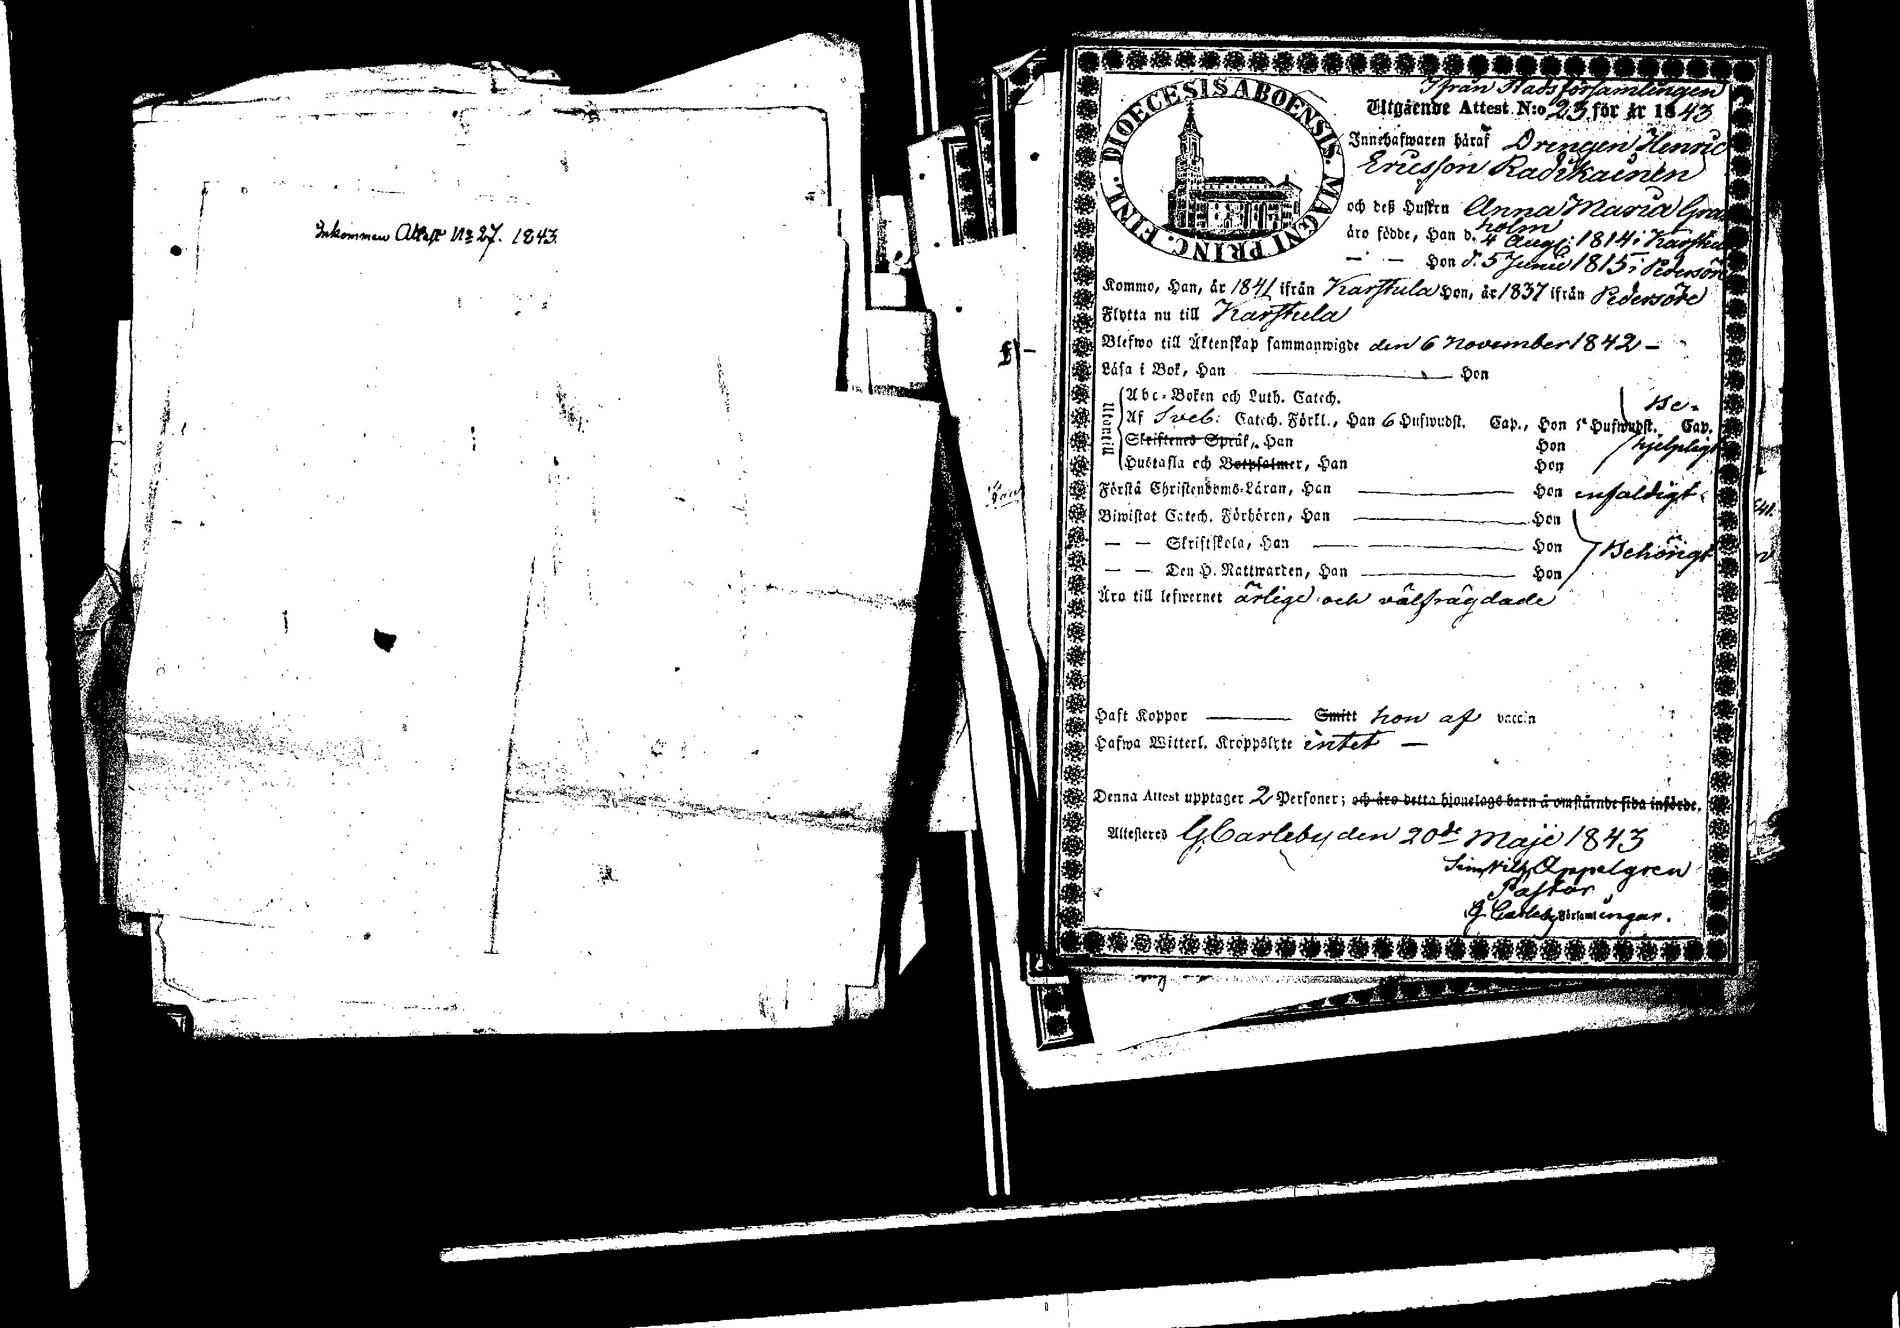 Inkommen Attest No 27. 1843.
DIOECESIS ABOENSIS. MAGNI PRINC. FINL.
Ifrån Stadsförsamlingen
Utgående Attest N:o 23 för år 1843
Innehafwaren häraf Drengen Henric
Ericsson Radikainen
och deß Hustru Anna Maria Gran
holm
äro födde, Han d. 4 Aug: 1814 i Karstula
— — Hon d. 5 Junii 1815 i Pedersöre
Kommo, Han, år 1841 ifrån Karstula Hon, år 1837 ifrån Pedersöre
Flytta nu till Karstula
Blefwo till Äktenskap sammanwigde den 6 November 1842 —
Läsa i Bok, Han Hon
Utontill
Abc-Boken och Luth. Catech. Be-
Af Sveb: Catech. Förkl., Han 6 Hufwudst. Cap., Hon 5 Hufwudst. Cap.
Skriftenes Språk, Han Hon hjelpligt
Hustafla och Botpsalmer, Han Hon
Förstå Christendoms-Läran, Han Hon enfaldigt
Biwistat Catech. Förhören, Han Hon
— — Skriftskola, Han Hon Behörigt
— — Den H. Nattwarden, Han Hon
Äro till lefwernet ärlige och välfrägdade
Haft Koppor Smitt hon af vaccin
Hafwa Witterl. Kroppslyte intet —
Denna Attest upptager 2 Personer; och äro detta hjonelags barn å omstående sida införde.
Attesteres G. Carleby den 20de Maji 1843
Sim. Wilh. Appelgren
Pastor
G. Carleby Församlingar.